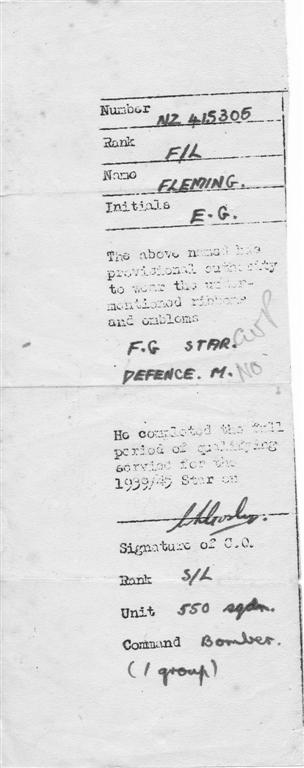 Number NZ 415305
Rank F/L
Name FLEMING.
Initials E.G.
The above named has
provisional authority
to wear the under-
mentioned ribbons
and emblems
F.G STAR.
DEFENCE. M. NO
He completed the full
period of qualifying
service for the
1939/45 Star on
Signature of C.O.
Rank S/L
Unit 550 sqdn.
Command Bomber.
(1 group)